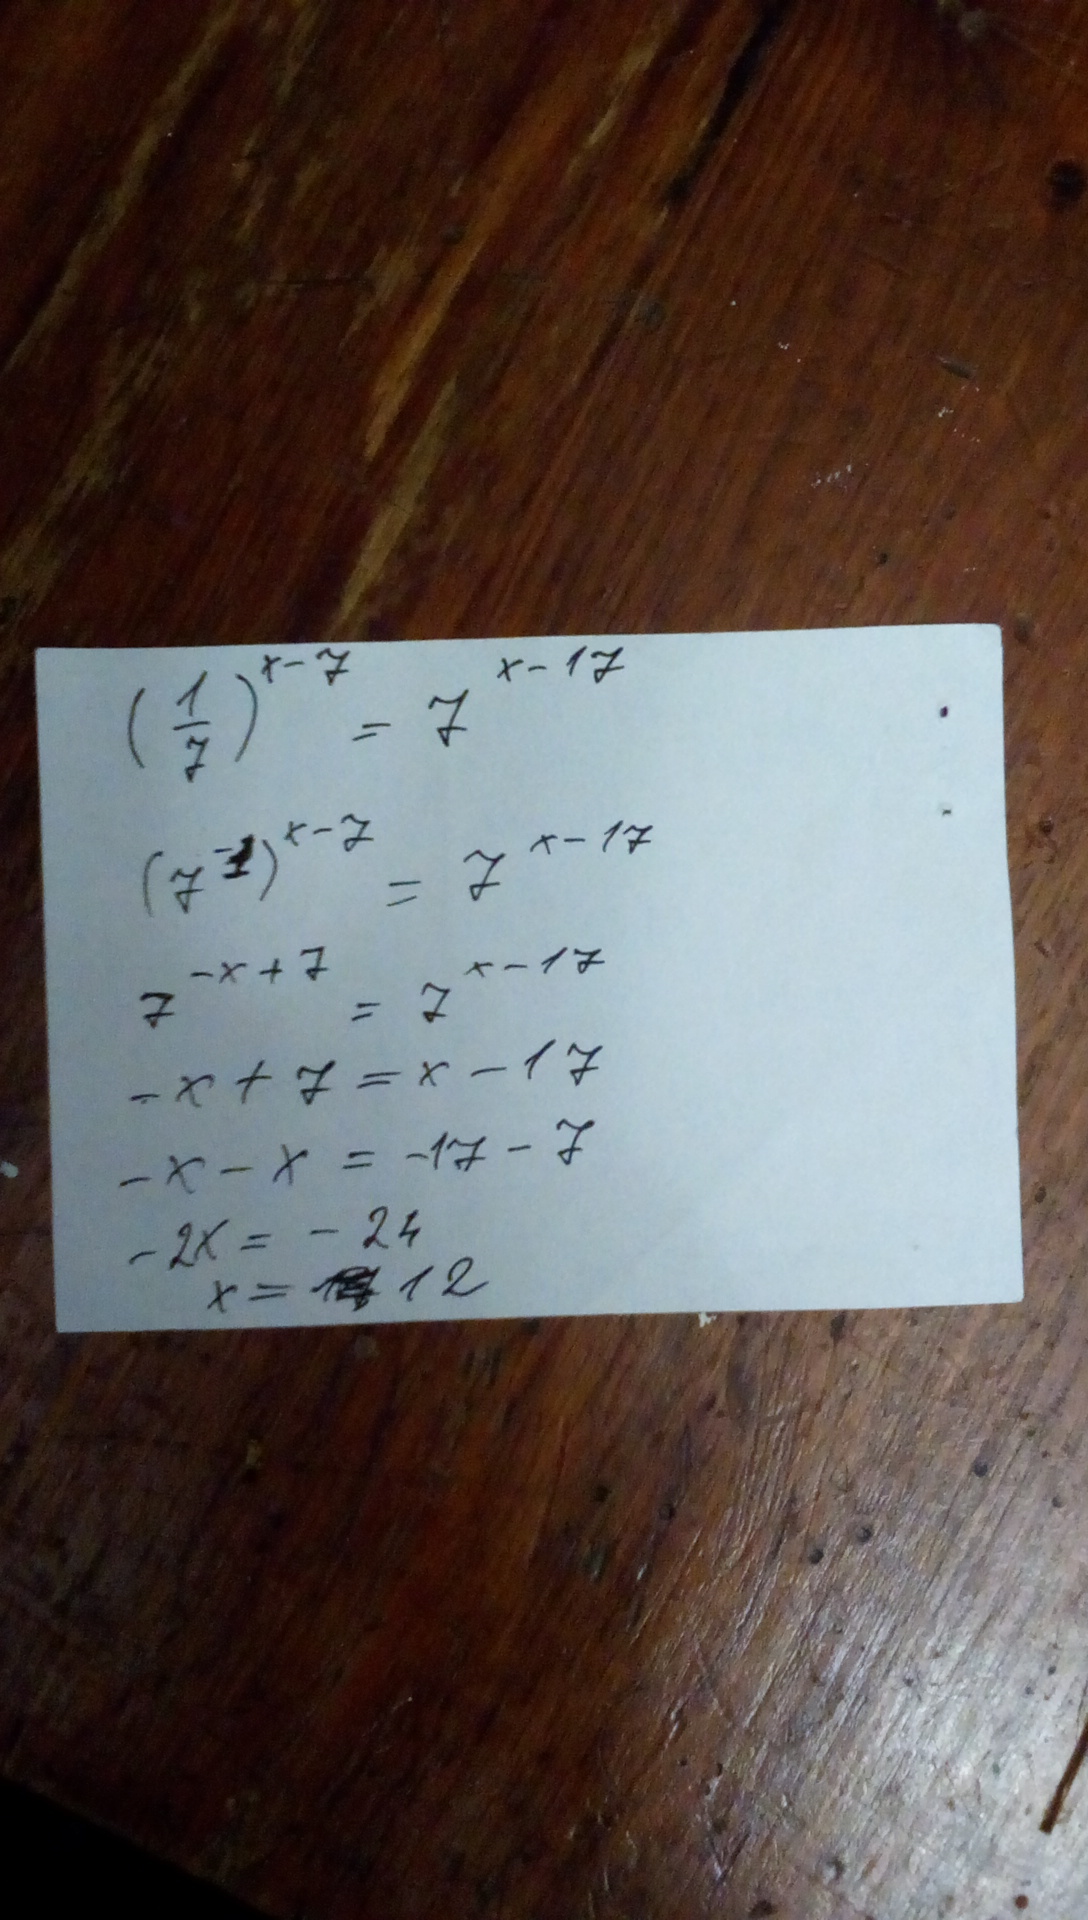 (1/7)^(x-7) = 7^(x-17)
(7^-1)^(x-7) = 7^(x-17)
7^(-x+7) = 7^(x-17)
-x+7=x-17
-x-x=-17-7
-2x=-24
x=12